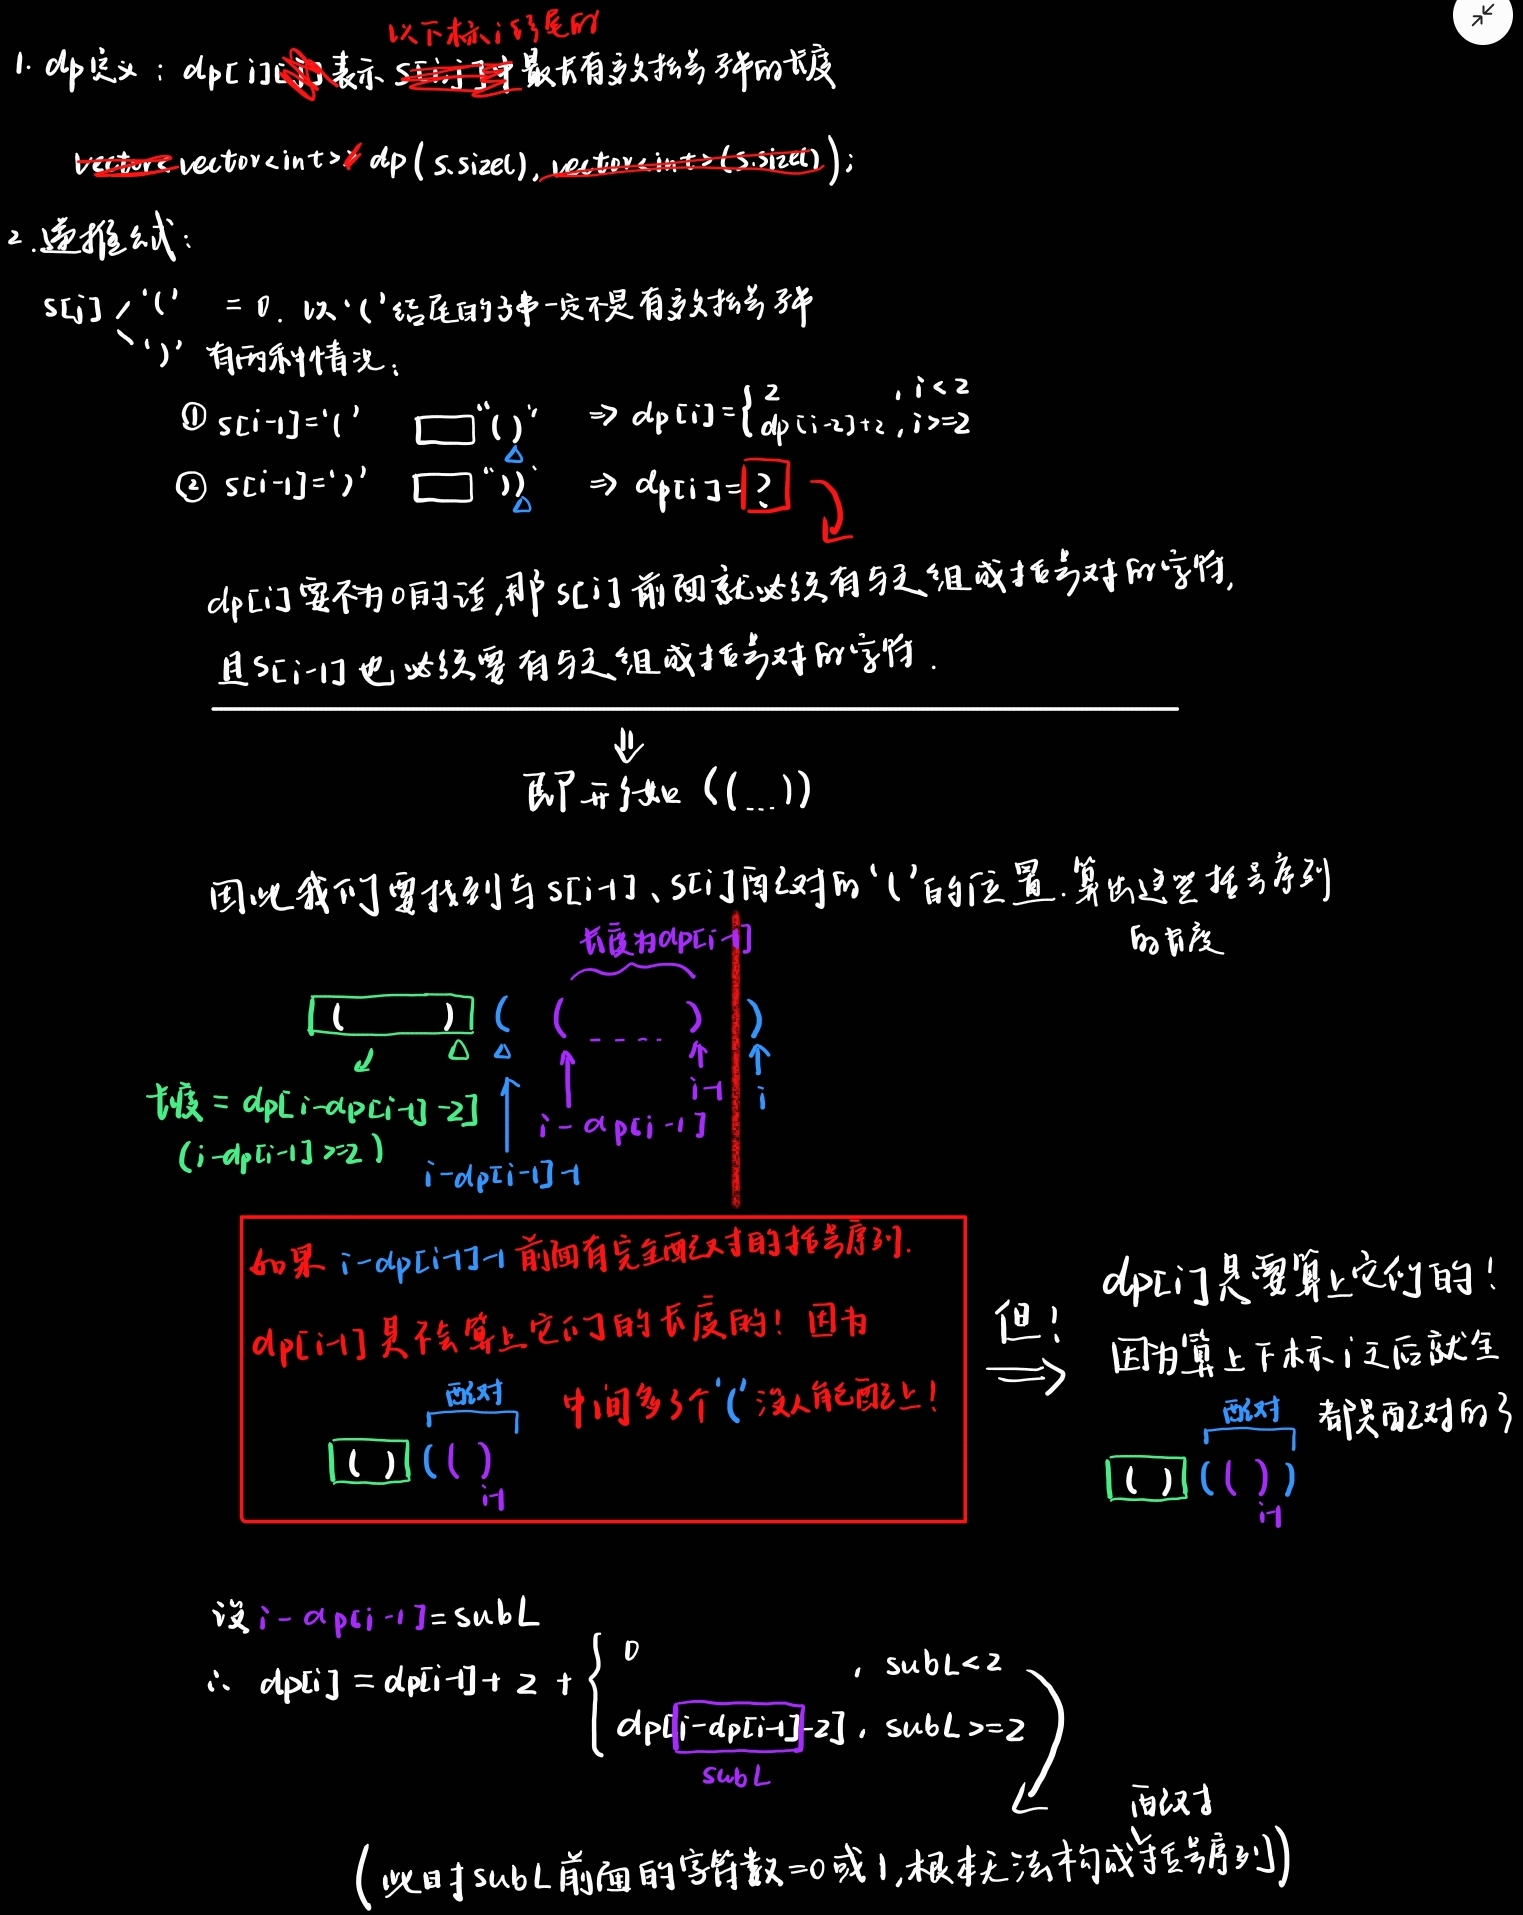 以下标i结尾的
1. dp定义：dp[i][j]表示 s[i:j]中最长有效括号子串的长度
vector< vector<int>> dp(s.size(), vector<int>(s.size()));
2.递推公式：
s[j] '(' = 0. 以'('结尾的子串一定不是有效括号子串
')' 有两种情况：
① s[i-1]='(' "()" ⇒ dp[i]={ 2 , i<2
dp[i-2]+2 , i>=2
② s[i-1]=')' "))" ⇒ dp[i]=?
dp[i]要不为0的话,那s[i]前面就必须有与之组成括号对的字符,
且s[i-1]也必须要有与之组成括号对的字符.
⇓
即形如 ((...))
因此我们要找到与s[i-1]、s[i]配对的'('的位置.算出这些括号序列
的长度
长度为dp[i-1]
( ) ( ( ---- ) )
i-1
i
长度 = dp[i-dp[i-1]-2]
i-dp[i-1]
(i-dp[i-1]>=2)
i-dp[i-1]-1
如果 i-dp[i-1]-1 前面有完全配对的括号序列.
dp[i-1]是不会算上它们的长度的！因为
中间多了个'('没人能配上！
配对
( ) ( ( )
i-1
但！
⇒
dp[i]是要算上它们的！
因为算上下标i之后就全
都是配对的了
配对
( ) ( ( ) )
i-1
设 i-dp[i-1]=subL
∴ dp[i] = dp[i-1]+ 2 + { 0 , subL<2
dp[i-dp[i-1]-2] , subL>=2
subL
配对
(此时subL前面的字符数=0或1,根本无法构成括号序列)